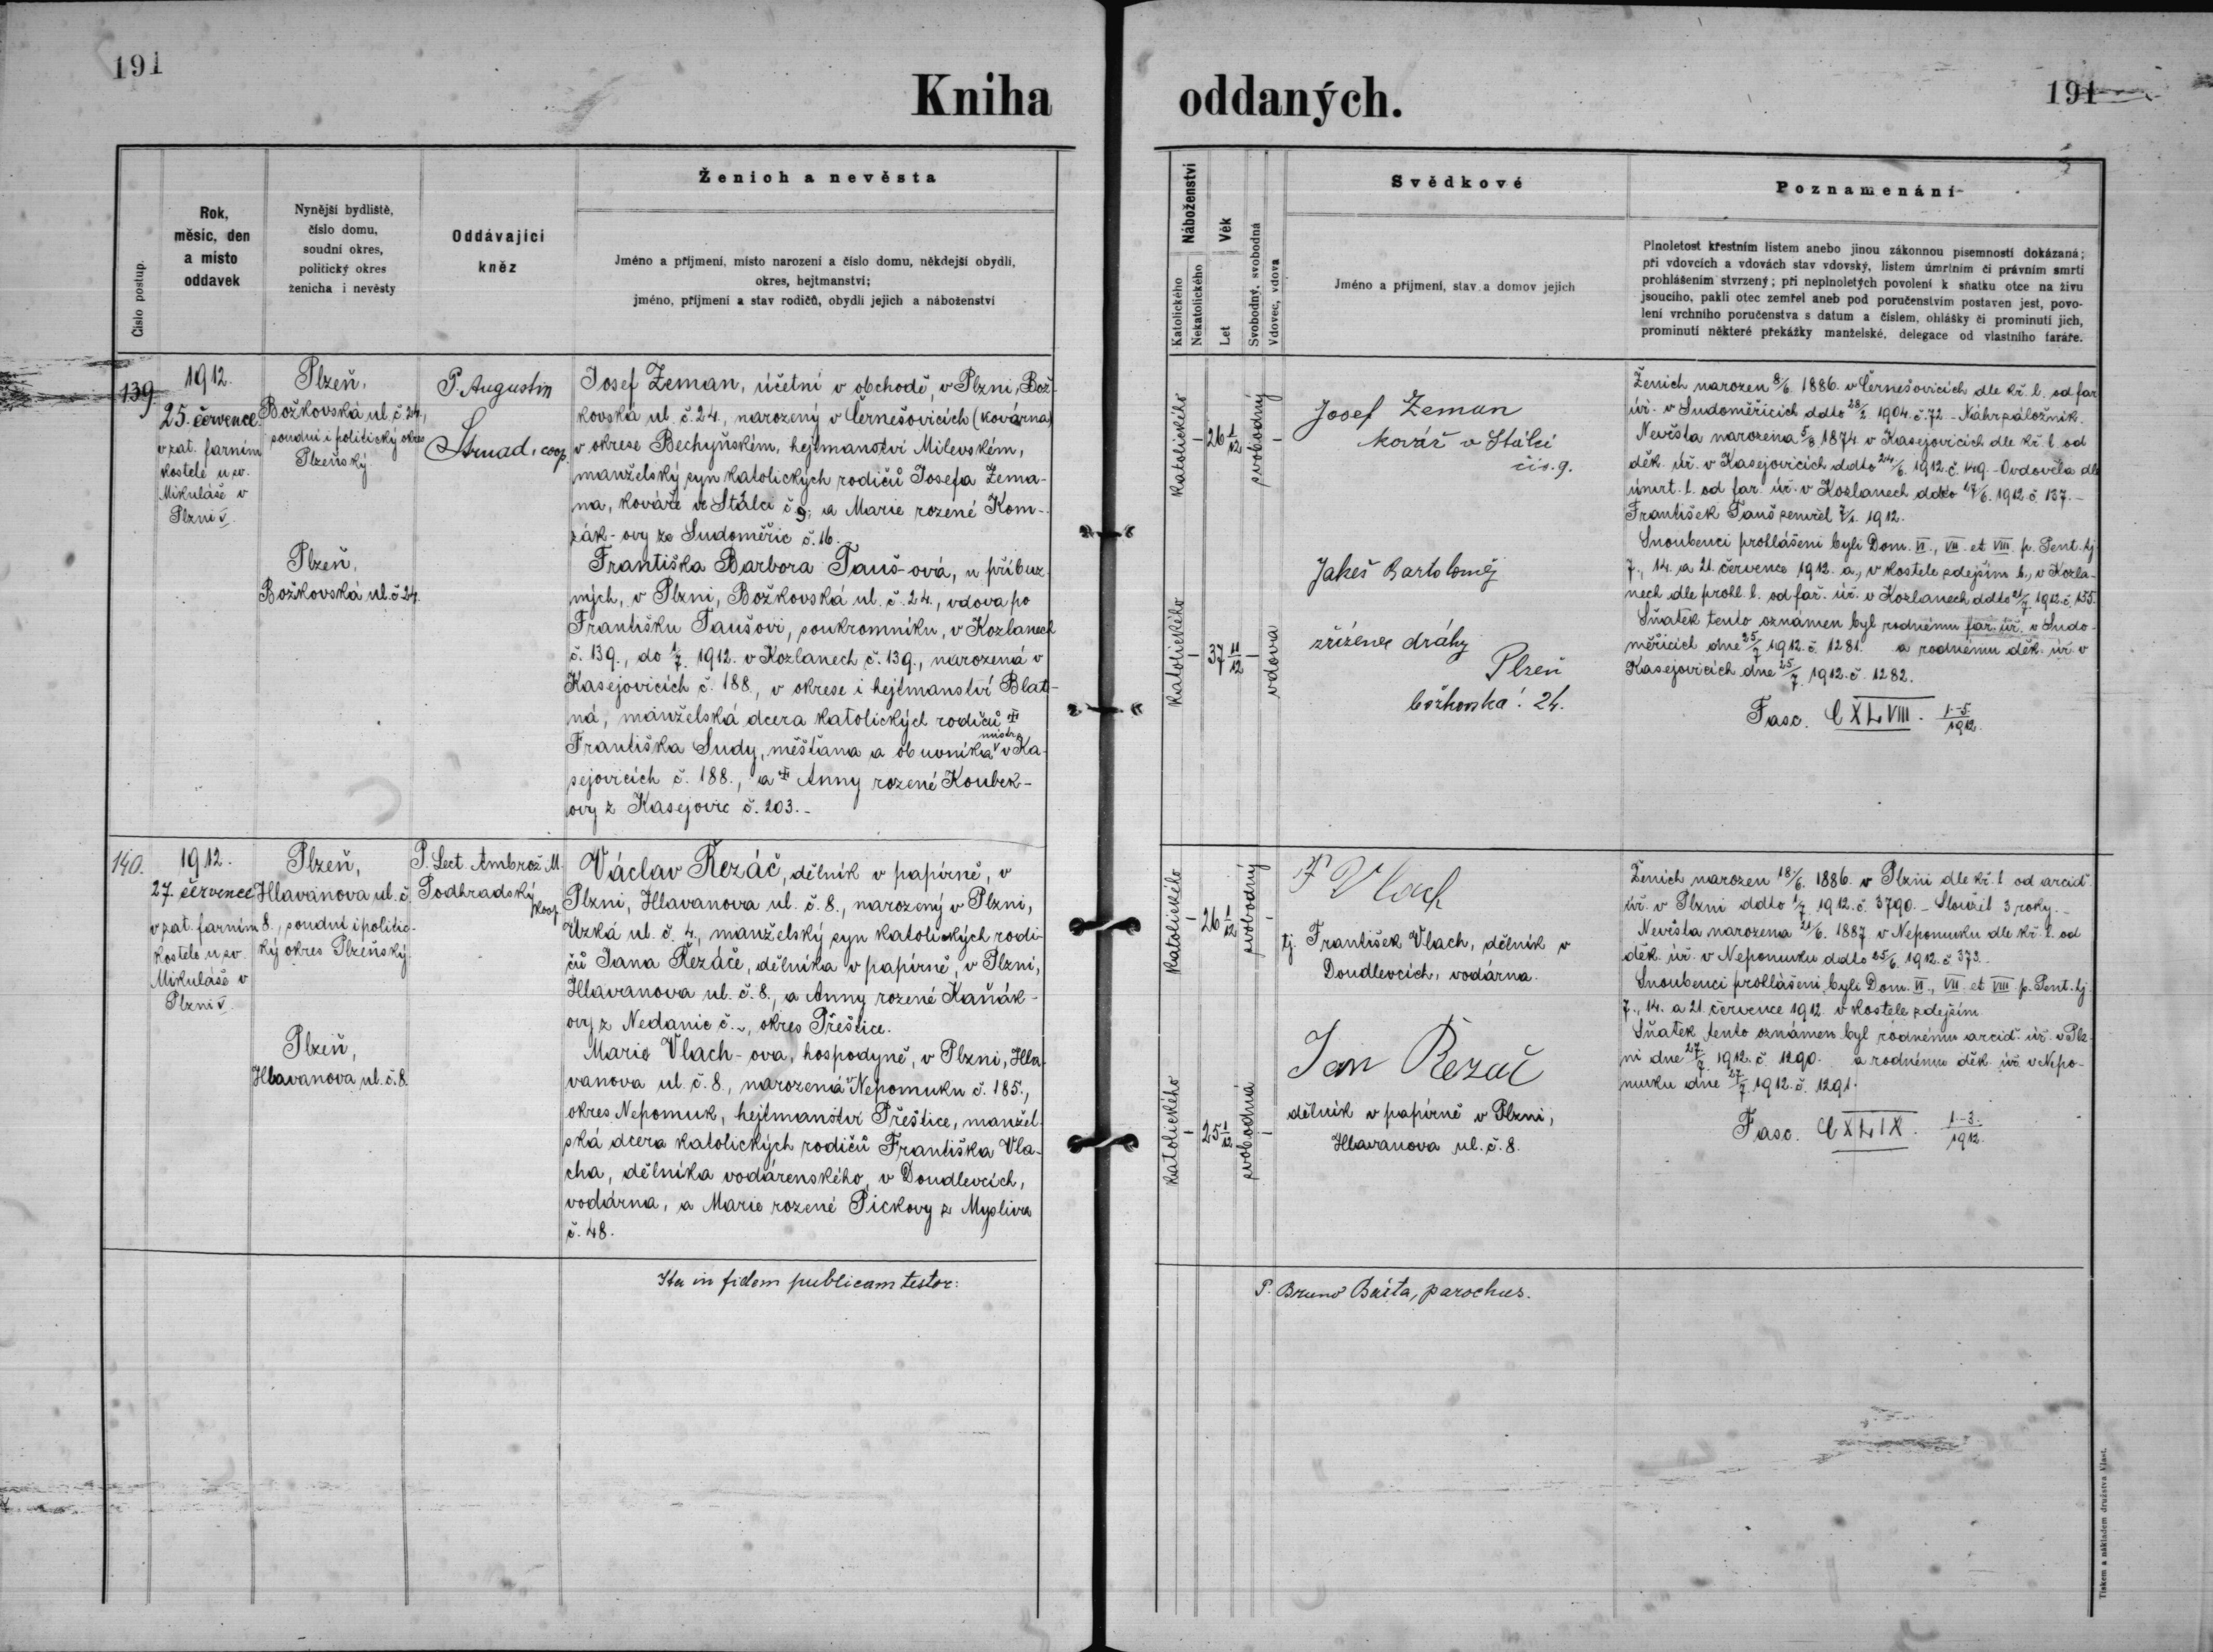 191
Kniha
oddaných.
191
Číslo postup.
Rok,
měsíc, den
a místo
oddavek
Nynější bydliště,
číslo domu,
soudní okres,
politický okres
ženicha i nevěsty
Oddávající
kněz
Ženich a nevěsta
Jméno a příjmení, místo narození a číslo domu, někdejší obydlí,
okres, hejtmanství;
jméno, příjmení a stav rodičů, obydlí jejich a náboženství
Náboženství
Katolického
Nekatolického
Věk
Let
Svobodný, svobodná
Vdovec, vdova
Svědkové
Jméno a příjmení, stav a domov jejich
Poznamenání
Plnoletost křestním listem anebo jinou zákonnou písemností dokázaná;
při vdovcích a vdovách stav vdovský, listem úmrtním či právním smrti
prohlášením stvrzený; při neplnoletých povolení k sňatku otce na živu
jsoucího, pakli otec zemřel aneb pod poručenstvím postaven jest, povo-
lení vrchního poručenstva s datum a číslem, ohlášky či prominutí jich,
prominutí některé překážky manželské, delegace od vlastního faráře.
139
1912.
25. července
v zat. farním
kostele u sv.
Mikuláše v
Plzni V.
Plzeň,
Božkovská ul. č 24,
soudní i politický okres
Plzeňský
Plzeň,
Božkovská ul. č 24.
P. Augustin
Strnad, coop.
Josef Zeman, účetní v obchodě, v Plzni, Bož-
kovská ul. č. 24., narozený v Černešovicích (kovárna)
v okrese Bechyňském, hejtmanství Milevském,
manželský syn katolických rodičů Josefa Zema-
na, kováře ve Stálci č 9, a Marie rozené Kom-
zák-ovy ze Sudoměřic č. 16.
Františka Barbora Tauš-ová, u příbuz-
ných, v Plzni, Božkovská ul. č. 24., vdova po
Františku Taušovi, soukromníku, v Kozlanech
č. 139., do 1/7. 1912. v Kozlanech č. 139., narozená v
Kasejovicích č. 188., v okrese i hejtmanství Blat-
ná, manželská dcera katolických rodičů †
Františka Sudy, měšťana a obuvníka mistra v Ka-
sejovicích č. 188., a † Anny rozené Koubek-
ovy z Kasejovic č. 203.-
katolického
- 26 1/12
svobodný
-
katolického
- 37 11/12 -
vdova
Josef Zeman
kovář v Stálci
čís. 9.
Jakeš Bartoloměj
zřízenec dráhy
Plzeň
božkovská č. 24.
Ženich narozen 8/6. 1886. v Černešovicích dle kř. l. od far
úř. v Sudoměřicích ddto 28/2 1904. č. 72 - Náhr. záložník.
Nevěsta narozena 5/8 1874. v Kasejovicích dle kř. l. od
děk. úř. v Kasejovicích ddto 24/6. 1912. č. 149. - Ovdověla dle
úmrt. l. od far. úř. v Kozlanech ddto 17/6. 1912. č. 137.-
František Tauš zemřel 7/1. 1912.
Snoubenci prohlášeni byli Dom. VI., VII. et VIII. p. Pent. tj.
7., 14. a 21. července 1912. a., v kostele zdejším b., v Kozla-
nech dle prohl. l. od far. úř. v Kozlanech ddto 21/7. 1912. č. 135.
Sňatek tento oznámen byl rodnému far. úř. v Sudo-
měřicích dne 25/7 1912. č. 1281. a rodnému děk. úř. v
Kasejovicích dne 25/7. 1912. č. 1282.
Fasc. CXLVIII. 1-5./1912.
140.
1912.
27. července
v zat. farním
kostele u sv.
Mikuláše v
Plzni V.
Plzeň,
Hlavanova ul. č.
8., soudní i politic-
ký okres Plzeňský.
Plzeň,
Hlavanova ul. č. 8.
P. Lect. Ambrož M.
Podhradský
koop.
Václav Řezáč, dělník v papírně, v
Plzni, Hlavanova ul. č. 8., narozený v Plzni,
Úzká ul. č. 4., manželský syn katolických rodi-
čů Jana Řezáče, dělníka v papírně, v Plzni,
Hlavanova ul. č. 8., a Anny rozené Kaňák-
ovy z Nedanic č. ~, okres Přeštice.
Marie Vlach-ova, hospodyně, v Plzni, Hla-
vanova ul. č. 8., narozená v Nepomuku č. 185.,
okres Nepomuk, hejtmanství Přeštice, manžel-
ská dcera katolických rodičů Františka Vla-
cha, dělníka vodárenského, v Doudlevcích,
vodárna, a Marie rozené Pickovy z Myslivа
č. 48.
katolického
- 26 1/12
svobodný
-
katolického
- 25 1/12
svobodná
-
F Vlach
tj. František Vlach, dělník v
Doudlevcích, vodárna.
Jan Řezáč
dělník v papírně v Plzni,
Hlavanova ul. č. 8.
Ženich narozen 18/6. 1886. v Plzni dle kř. l. od arcid.
úř. v Plzni ddto 1/7. 1912. č. 3790. - Sloužil 3 roky. -
Nevěsta narozena 21/6. 1887. v Nepomuku dle kř. l. od
děk. úř. v Nepomuku ddto 25/6. 1912. č 373.
Snoubenci prohlášeni byli Dom. VI., VII. et VIII. p. Pent. tj.
7., 14. a 21. července 1912. v kostele zdejším.
Sňatek tento oznámen byl rodnému arcid. úř. v Plz-
ni dne 27/7. 1912. č. 1290. a rodnému děk. úř. v Nepo-
muku dne 27/7 1912. č. 1291.
Fasc. CXLIX. 1-3./1912.
Ita in fidem publicam testor:
P. Bruno Bašta, parochus.
Tiskem a nákladem družstva Vlast.